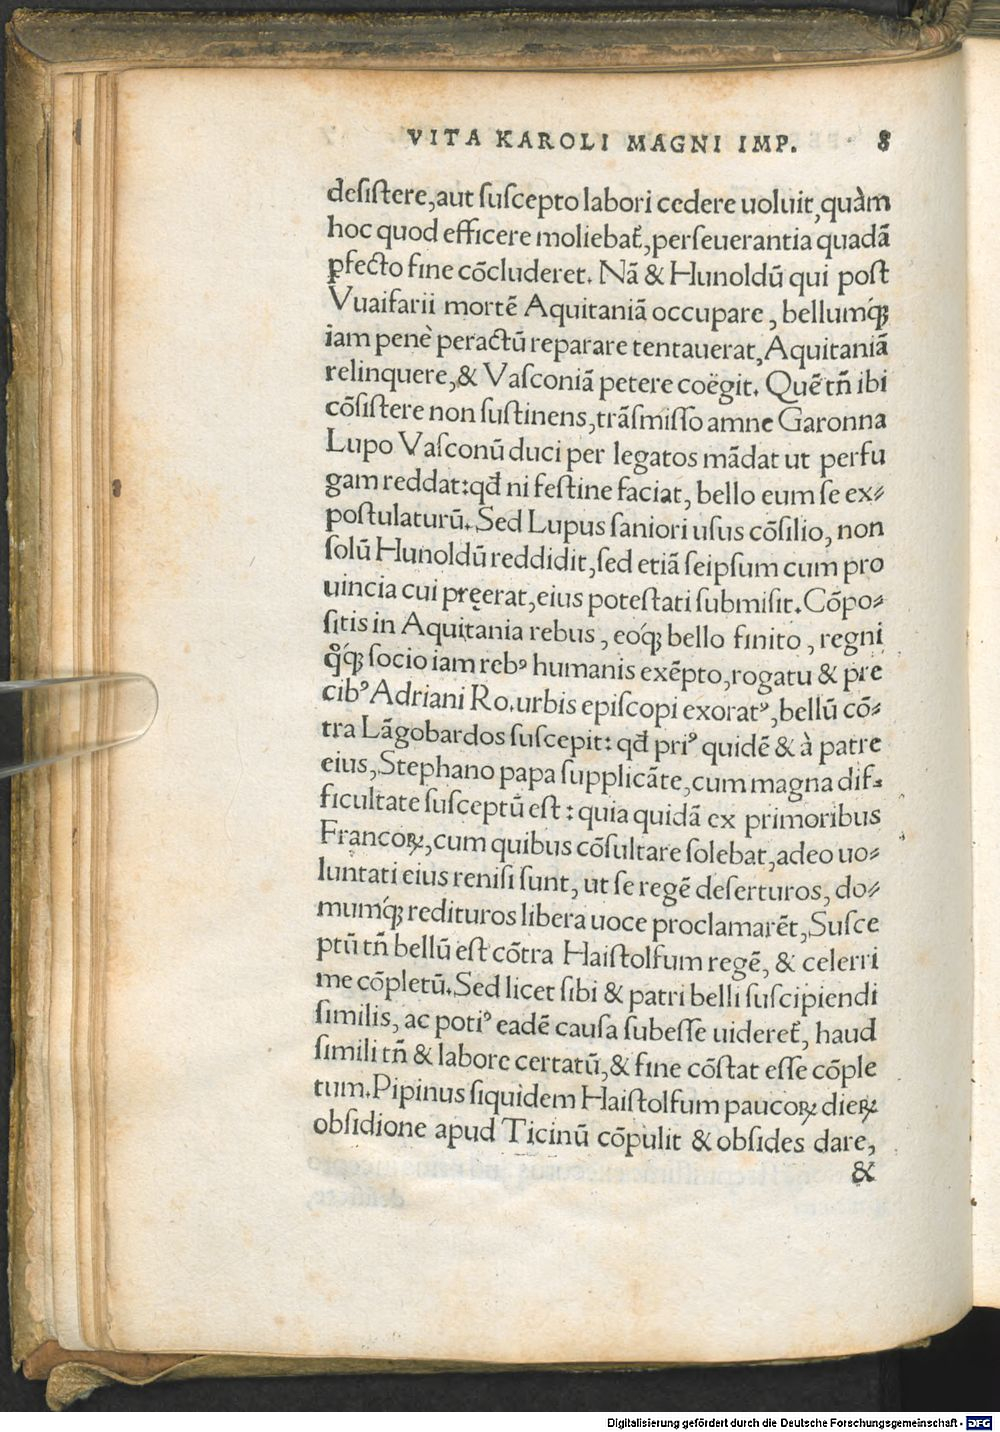 VITA KAROLI MAGNI IMP. 8
deſiſtere,aut ſuſcepto labori cedere uoluit,quàm
hoc quod efficere moliebat᷑,perſeuerantia quadã
ꝑfecto fine cõcluderet. Nã & Hunoldũ qui poſt
Vuaifarii mortẽ Aquitaniã occupare, bellumq́ꝫ
iam penè peractũ reparare tentauerat,Aquitaniã
relinquere,& Vaſconiã petere coëgit. Quẽ tñ ibi
cõſiſtere non ſuſtinens,trãſmiſſo amne Garonna
Lupo Vaſconũ duci per legatos mãdat ut perfu
gam reddat:qđ ni feſtine faciat, bello eum ſe ex⸗
poſtulaturũ. Sed Lupus ſaniori uſus cõſilio, non
ſolũ Hunoldũ reddidit,ſed etiã ſeipſum cum pro
uincia cui pręerat,eius poteſtati ſubmiſit. Cõpo⸗
ſitis in Aquitania rebus, eoq́ꝫ bello finito, regni
qͦq́ꝫ ſocio iam rebꝰ humanis exẽpto,rogatu & pre
cibꝰ Adriani Ro.urbis epiſcopi exoratꝰ,bellũ cõ⸗
tra Lãgobardos ſuſcepit: qđ priꝰ quidẽ & à patre
eius,Stephano papa ſupplicãte,cum magna dif⸗
ficultate ſuſceptũ eſt: quia quidã ex primoribus
Francoꝝ,cum quibus cõſultare ſolebat,adeo uo⸗
luntati eius reniſi ſunt, ut ſe regẽ deſerturos, do⸗
mumq́ꝫ redituros libera uoce proclamarẽt,Suſce
ptũ tñ bellũ eſt cõtra Haiſtolfum regẽ, & celerri
me cõpletũ. Sed licet ſibi & patri belli ſuſcipiendi
ſimilis, ac potiꝰ eadẽ cauſa ſubeſſe uideret᷑, haud
ſimili tñ & labore certatũ,& fine cõſtat eſſe cõple
tum. Pipinus ſiquidem Haiſtolfum paucoꝝ dieꝝ
obſidione apud Ticinũ cõpulit & obſides dare,
&
Digitalisierung gefördert durch die Deutsche Forschungsgemeinschaft - DFG